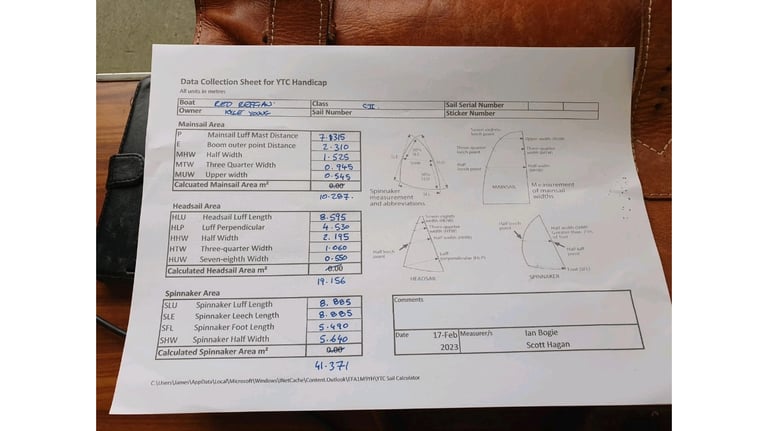 Data Collection Sheet for YTC Handicap
All units in metres
Boat RED REFFIAN Class CII. Sail Serial Number
Owner KYLE YOUNG Sail Number Sticker Number
Mainsail Area
P Mainsail Luff Mast Distance 7.8315
E Boom outer point Distance 2.310
MHW Half Width 1.525
MTW Three Quarter Width 0.945
MUW Upper width 0.545
Calcuated Mainsail Area m² 0.00
10.287.
Headsail Area
HLU Headsail Luff Length 8.595
HLP Luff Perpendicular 4.530
HHW Half Width 2.195
HTW Three-quarter Width 1.060
HUW Seven-eighth Width 0.550
Calculated Headsail Area m² 0.00
19.156
Spinnaker Area
SLU Spinnaker Luff Length 8.885
SLE Spinnaker Leech Length 8.885
SFL Spinnaker Foot Length 5.490
SHW Spinnaker Half Width 5.640
Calculated Spinnaker Area m² 0.00
41.371
Spinnaker
measurement
and abbreviations
Seven-eighths
leech point
Upper width
Three-quarter
leech point
Three-quarter
width
Half
leech point
Half width
MAINSAIL
Measurement
of mainsail
widths
Seven-eighth
Three-quarter
width (HTW)
Half width (HHW)
Half leech
point
Luff
perpendicular (HLP)
HEADSAIL
Half leech
point
Half width (SHW)
Half luff
point
Foot (SFL)
SPINNAKER
Comments
Date 17-Feb 2023 Measurer/s Ian Bogie
Scott Hagan